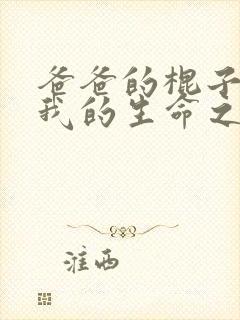 爸爸的棍子
我的生命之
淮西